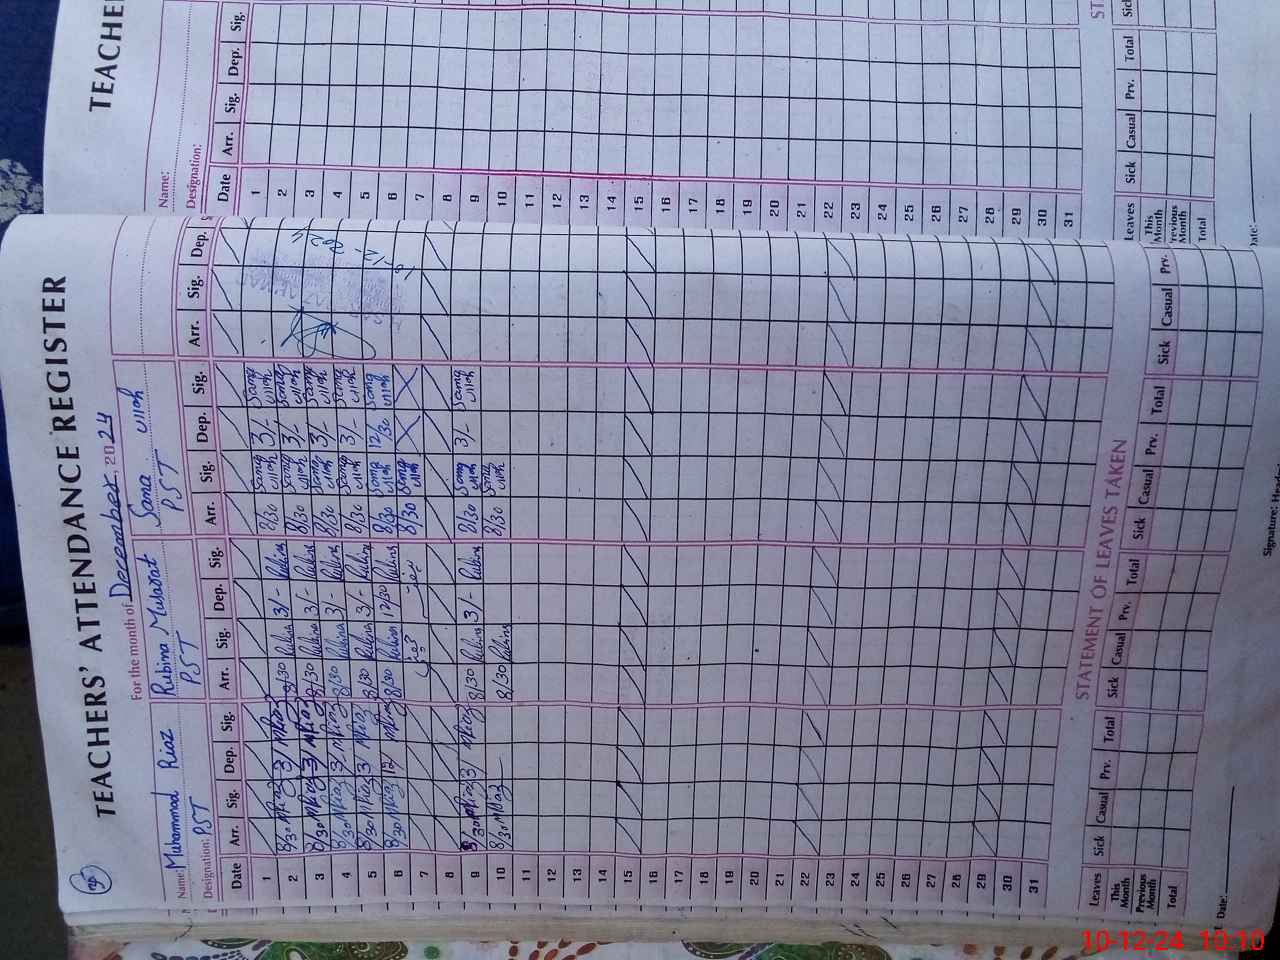 TEACHERS' ATTENDANCE REGISTER
For the month of December, 2024
Name: Muhammad Riaz Rubina Musarat Sana Ullah
Designation: PST PST PST
Date Arr. Sig. Dep. Sig. Arr. Sig. Dep. Sig. Arr. Sig. Dep. Sig. Arr. Sig. Dep.
1 8/30 Sana Ullah 3/- Sana Ullah
2 8/30 MRiaz 3 MRiaz 8/30 Rubina 3/- Rubina 8/30 Sana Ullah 3/- Sana Ullah
3 8/30 MRiaz 3 MRiaz 8/30 Rubina 3/- Rubina 8/30 Sana Ullah 3/- Sana Ullah
4 8/30 MRiaz 3 MRiaz 8/30 Rubina 3/- Rubina 8/30 Sana Ullah 3/- Sana Ullah
5 8/30 MRiaz 3 MRiaz 8/30 Rubina 3/- Rubina 8/30 Sana Ullah 12/30 Sana Ullah
6 8/30 MRiaz 12 MRiaz 8/30 Rubina 12/30 Rubina 8/30 Sana Ullah
7
8
9 8/30 MRiaz 3/ MRiaz 8/30 Rubina 3/- Rubina 8/30 Sana Ullah 3/- Sana Ullah
10 8/30 MRiaz 8/30 Rubina 8/30 Sana Ullah
11
12
13
14
15
16
17
18
19
20
21
22
23
24
25
26
27
28
29
30
31
STATEMENT OF LEAVES TAKEN
Leaves Sick Casual Prv. Total Sick Casual Prv. Total Sick Casual Prv. Total Sick Casual Prv.
This Month
Previous Month
Total
Date:
Signature:
TEACHE
Name:
Designation:
Date Arr. Sig. Dep. Sig.
1
2
3
4
5
6
7
8
9
10
11
12
13
14
15
16
17
18
19
20
21
22
23
24
25
26
27
28
29
30
31
ST
Leaves Sick Casual Prv. Total Sick
This Month
Previous Month
Total
Date:
10-12-24 10:10